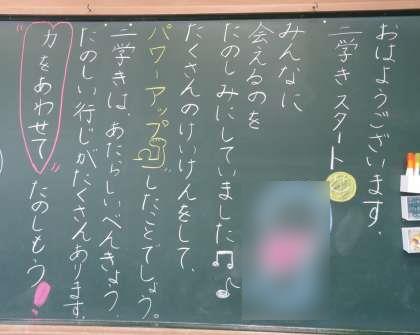 おはようございます。
二学きスタート
みんなに
会えるのを
たのしみにしていました♫♪
たくさんのけいけんをして、
パワーアップしたことでしょう。
二学きは、あたらしいべんきょう、
たのしい行じがたくさんあります。
"力をあわせて"たのしもう!